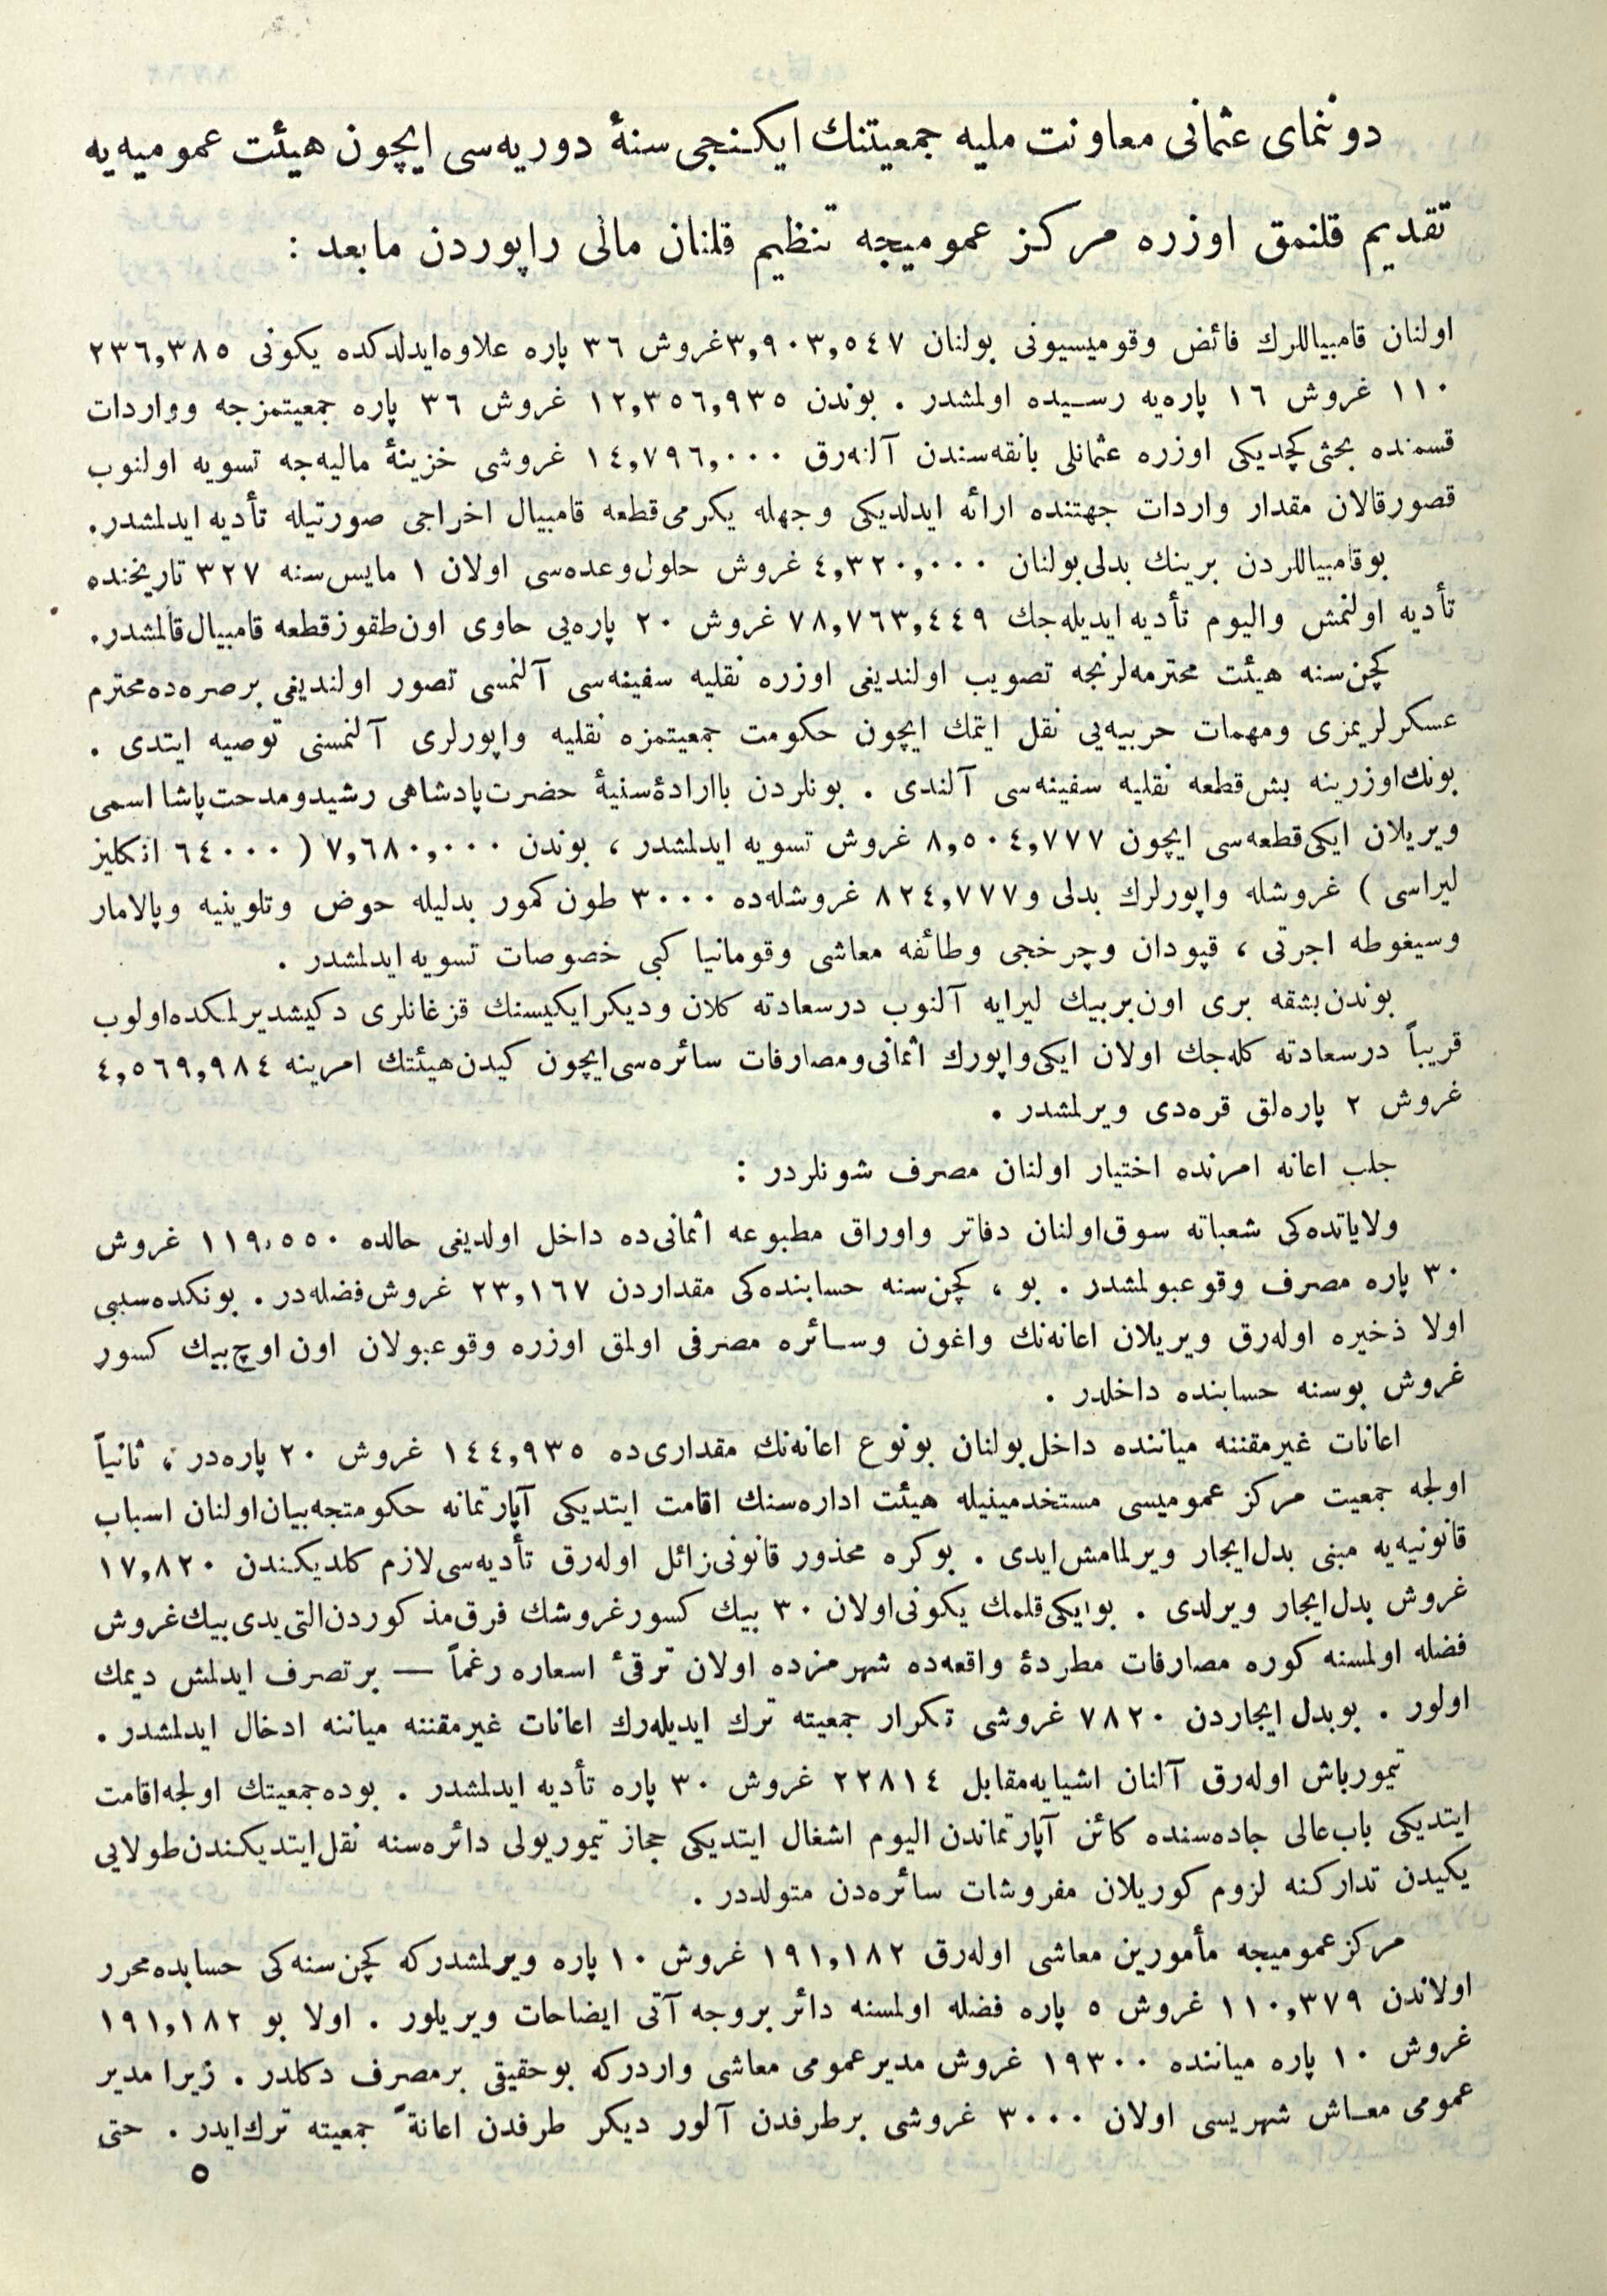 دوننمای عثمانی معاونت ملیه جمعیتنك ایکنجی سنهٔ دوریه‌سی ایچون هیئت عمومیه‌یه
تقدیم قلنمق اوزره مرکز عمومیجه تنظیم قلنان مالی راپوردن مابعد :
اولنان قامبیاللرك فائض وقومیسیونی بولنان ٣,٩٠٣,٥٤٧ غروش ٣٦ پاره علاوه‌ایدلدکده یکونی ٢٣٦,٣٨٥
١١٠ غروش ١٦ پاره‌یه رسیده اولمشدر . بوندن ١٢,٣٥٦,٩٣٥ غروش ٣٦ پاره جمعیتمزجه وواردات
قسمنده بحثی کچدیکی اوزره عثمانلی بانقه‌سندن آلنه‌رق ١٤,٧٩٦,٠٠٠ غروشی خزینهٔ مالیه‌جه تسویه اولنوب
قصورقالان مقدار واردات جهتنده ارائه ایدلدیکی وجهله یکرمی‌قطعه قامبیال اخراجی صورتیله تأدیه ایدلمشدر.
بوقامبیاللردن برینك بدلی‌بولنان ٤,٣٢٠,٠٠٠ غروش حلول‌وعده‌سی اولان ١ مایس‌سنه ٣٢٧ تاریخنده
تأدیه اولنمش والیوم تأدیه‌ایدیله‌جك ٧٨,٧٦٣,٤٤٩ غروش ٢٠ پاره‌یی حاوی اون‌طقوزقطعه قامبیال‌قالمشدر.
کچن‌سنه هیئت محترمه‌لرنجه تصویب اولندیغی اوزره نقلیه سفینه‌سی آلنمسی تصور اولندیغی برصره‌ده‌محترم
عسکرلریمزی ومهمات حربیه‌یی نقل ایتمك ایچون حکومت جمعیتمزه نقلیه واپورلری آلنمسنی توصیه ایتدی .
بونك‌اوزرینه بش‌قطعه نقلیه سفینه‌سی آلندی . بونلردن باارادهٔ‌سنیهٔ حضرت‌پادشاهی رشیدومدحت‌پاشا اسمی
ویریلان ایکی‌قطعه‌سی ایچون ٨,٥٠٤,٧٧٧ غروش تسویه ایدلمشدر ، بوندن ٧,٦٨٠,٠٠٠ ( ٦٤٠٠٠ انکلیز
لیراسی ) غروشله واپورلرك بدلی و٨٢٤,٧٧٧ غروشله‌ده ٣٠٠٠ طون‌کمور بدلیله حوض وتلوینیه وپالامار
وسیغوطه اجرتی ، قپودان وچرخجی وطائفه معاشی وقومانیا کبی خصوصات تسویه‌ایدلمشدر .
بوندن‌بشقه بری اون‌بربیك لیرایه آلنوب درسعادته کلان ودیکرایکیسنك قزغانلری دکیشدیرلمکده‌اولوب
قریباً درسعادته کله‌جك اولان ایکی‌واپورك اثمانی‌ومصارفات سائره‌سی‌ایچون کیدن‌هیئتك امرینه ٤,٥٦٩,٩٨٤
غروش ٢ پاره‌لق قره‌دی ویرلمشدر .
جلب اعانه امرنده اختیار اولنان مصرف شونلردر :
ولایاتده‌کی شعباته سوق‌اولنان دفاتر واوراق مطبوعه اثمانی‌ده داخل اولدیغی حالده ١١٩,٥٥٠ غروش
٣٠ پاره مصرف وقوعبولمشدر . بو ، کچن‌سنه حسابنده‌کی مقداردن ٢٣,١٦٧ غروش‌فضله‌در . بونکده‌سببی
اولا ذخیره اوله‌رق ویریلان اعانه‌نك واغون وسائره مصرفی اولمق اوزره وقوعبولان اون‌اوچ‌بیك کسور
غروش بوسنه حسابنده داخلدر .
اعانات غیرمقننه میاننده داخل‌بولنان بونوع اعانه‌نك مقداری‌ده ١٤٤,٩٣٥ غروش ٢٠ پاره‌در ، ثانیاً
اولجه جمعیت مرکز عمومیسی مستخدمینیله هیئت اداره‌سنك اقامت ایتدیکی آپارتمانه حکومتجه‌بیان‌اولنان اسباب
قانونیه‌یه مبنی بدل‌ایجار ویرلمامش‌ایدی . بوکره محذور قانونی‌زائل اوله‌رق تأدیه‌سی‌لازم کلدیکندن ١٧,٨٢٠
غروش بدل‌ایجار ویرلدی . بوایکی‌قلمك یکونی‌اولان ٣٠ بیك کسورغروشك فرق‌مذکوردن‌التی‌یدی‌بیك‌غروش
فضله اولمسنه کوره مصارفات مطردهٔ واقعه‌ده شهرمزده اولان ترقیٔ اسعاره رغماً — برتصرف ایدلمش دیمك
اولور . بوبدل ایجاردن ٧٨٢٠ غروشی تکرار جمعیته ترك ایدیله‌رك اعانات غیرمقننه میاننه ادخال ایدلمشدر .
تیمورباش اوله‌رق آلنان اشیایه‌مقابل ٢٢٨١٤ غروش ٣٠ پاره تأدیه ایدلمشدر . بوده‌جمعیتك اولجه‌اقامت
ایتدیکی باب‌عالی جاده‌سنده کائن آپارتماندن الیوم اشغال ایتدیکی حجاز تیموریولی دائره‌سنه نقل‌ایتدیکندن‌طولایی
یکیدن تدارکنه لزوم کوریلان مفروشات سائره‌دن متولددر .
مرکزعمومیجه مأمورین معاشی اوله‌رق ١٩١,١٨٢ غروش ١٠ پاره ویرلمشدرکه کچن‌سنه‌کی حسابده‌محرر
اولاندن ١١٠,٣٧٩ غروش ٥ پاره فضله اولمسنه دائر بروجه آتی ایضاحات ویریلور . اولا بو ١٩١,١٨٢
غروش ١٠ پاره میاننده ١٩٣٠٠ غروش مدیرعمومی معاشی واردرکه بوحقیقی برمصرف دکلدر . زیرا مدیر
عمومی معاش شهریسی اولان ٣٠٠٠ غروشی برطرفدن آلور دیکر طرفدن اعانةً جمعیته ترك‌ایدر . حتی
٥